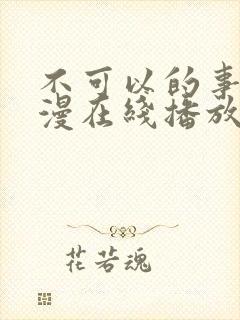 不可以的事
漫在线播放
花若魂